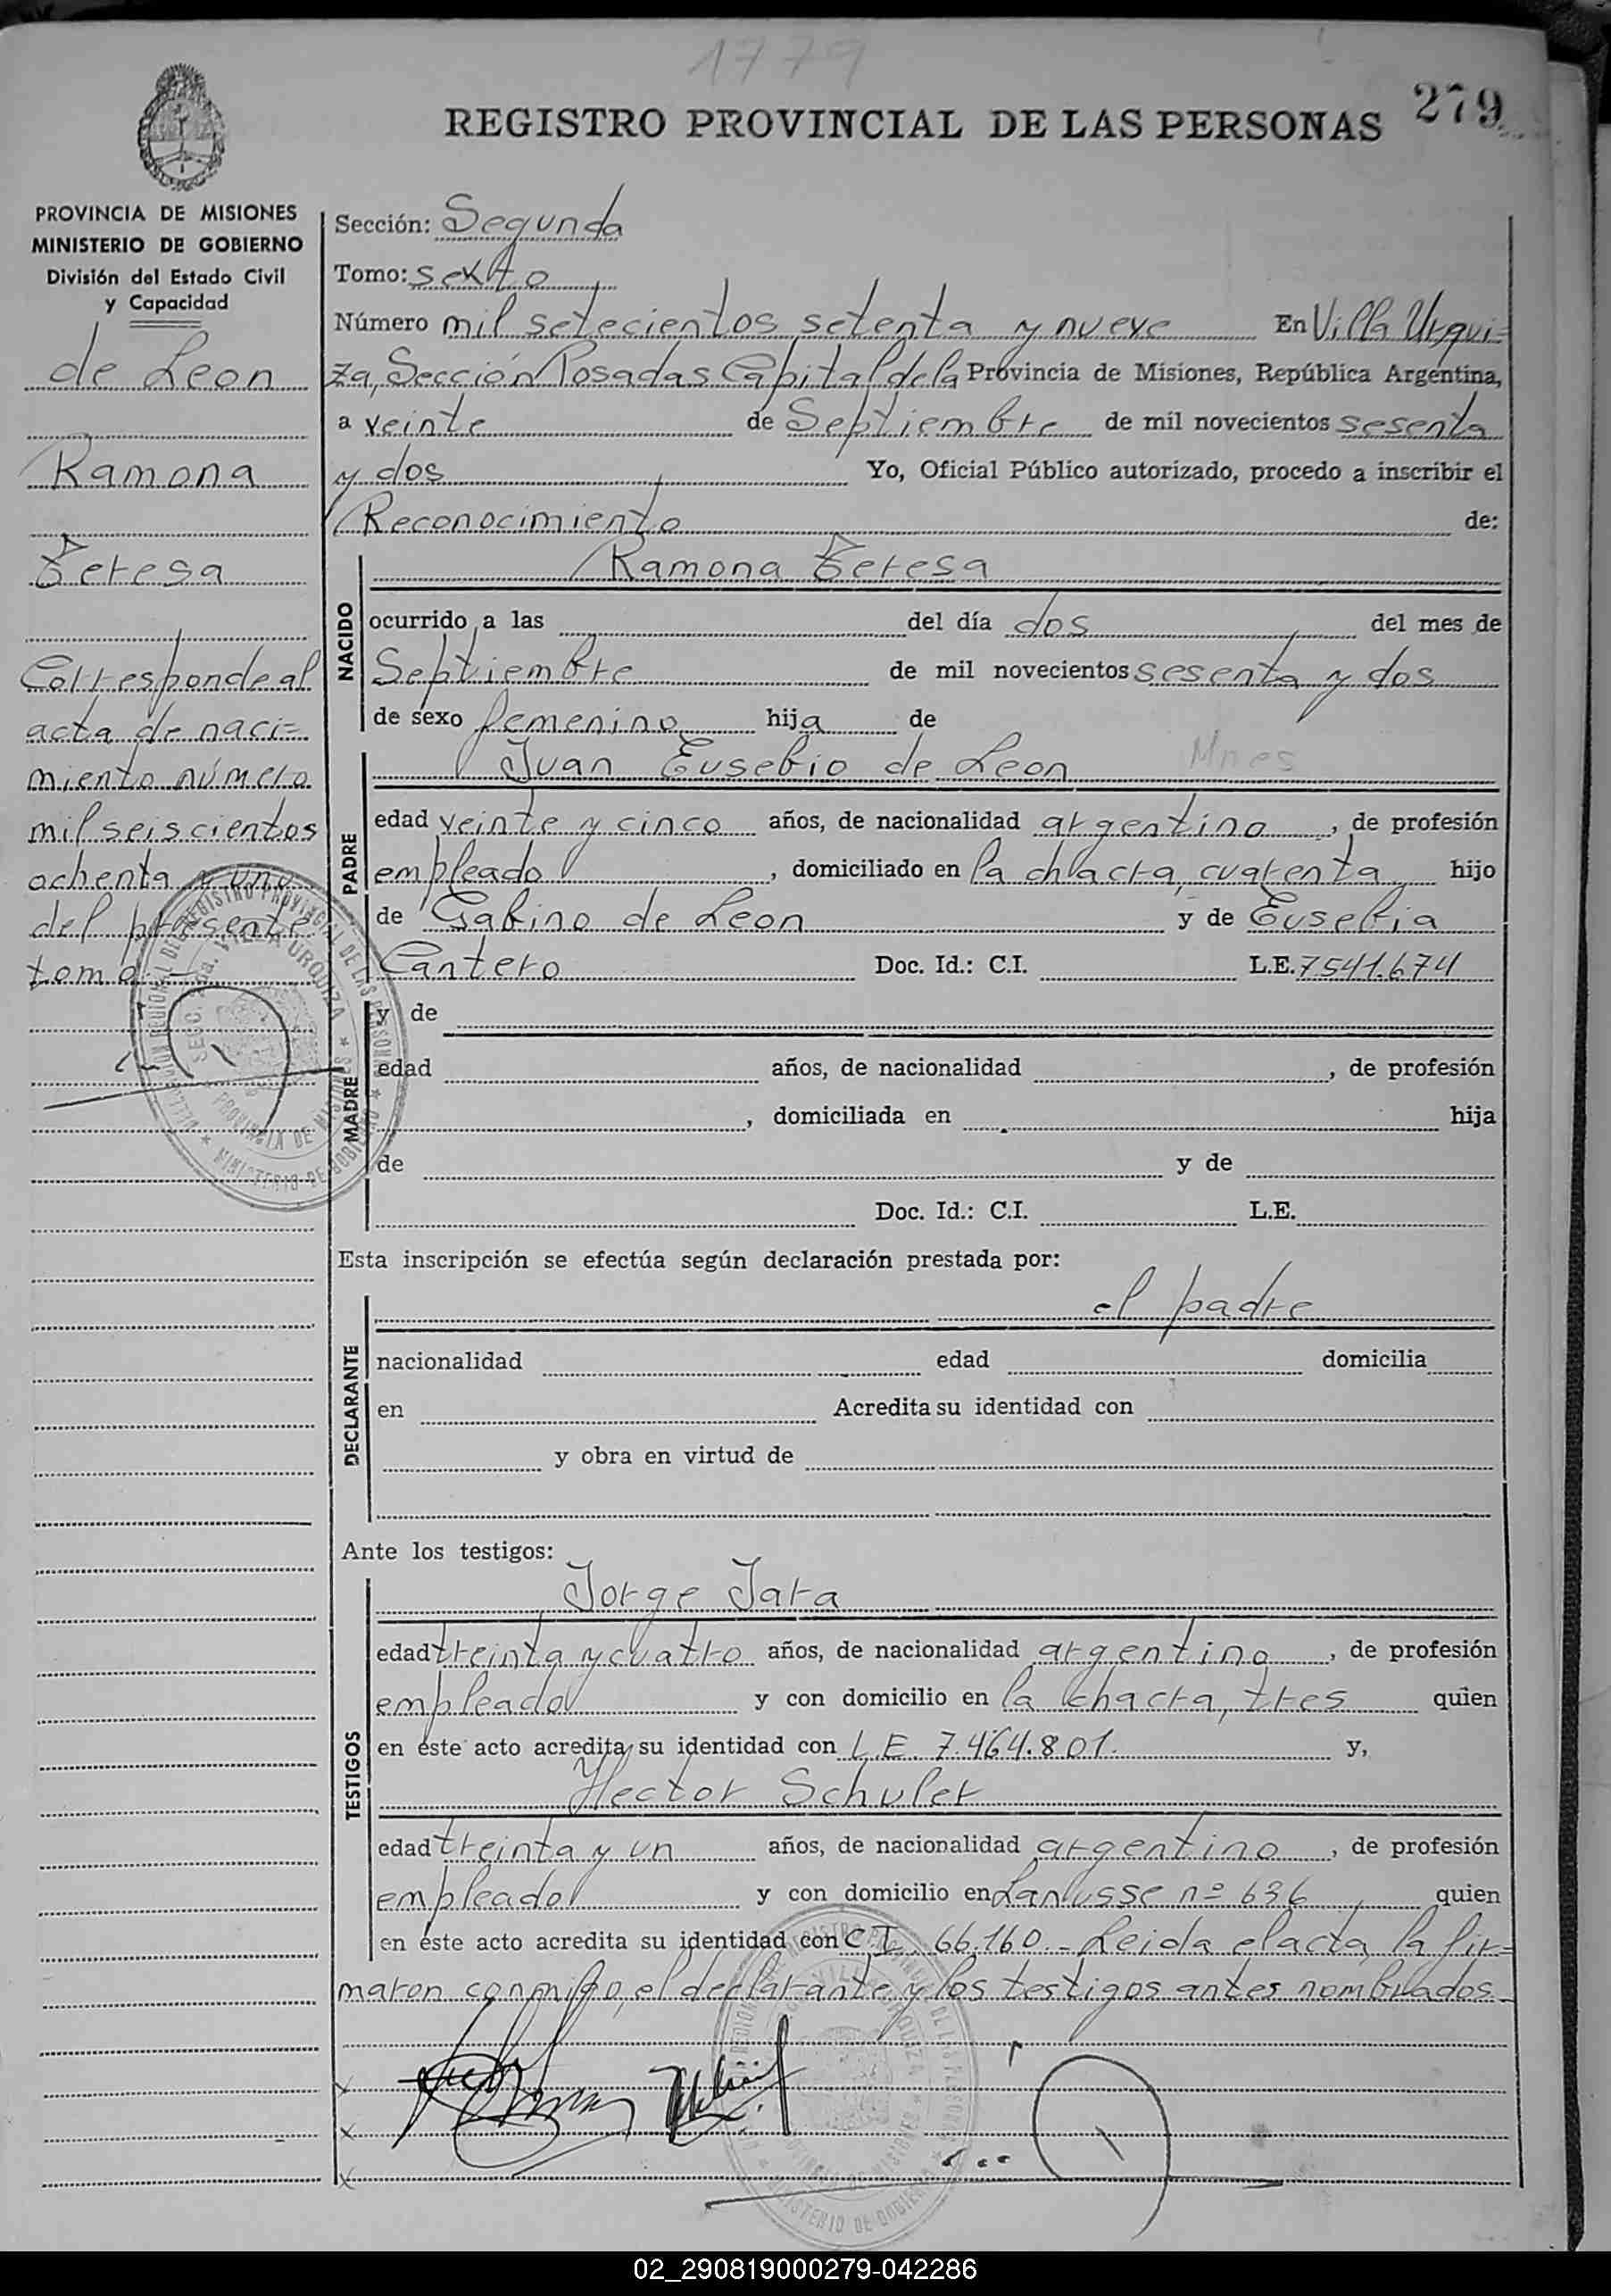 1779
279
REGISTRO PROVINCIAL DE LAS PERSONAS
PROVINCIA DE MISIONES
MINISTERIO DE GOBIERNO
División del Estado Civil
y Capacidad
de Leon
Ramona
Teresa
Corresponde al
acta de naci=
miento número
mil seiscientos
ochenta y uno
del presente
tomo.
Sección: Segunda
Tomo: sexto
Número mil setecientos setenta y nueve En Villa Urqui=
za, Sección Posadas Capital de la Provincia de Misiones, República Argentina,
a veinte de Septiembre de mil novecientos sesenta
y dos Yo, Oficial Público autorizado, procedo a inscribir el
Reconocimiento de:
NACIDO
Ramona Teresa
ocurrido a las del día dos del mes de
Septiembre de mil novecientos sesenta y dos
de sexo femenino hija de
PADRE
Juan Eusebio de Leon Mnes
edad veinte y cinco años, de nacionalidad argentino, de profesión
empleado, domiciliado en la chacra cuarenta hijo
de Gabino de Leon y de Eusebia
Cantero Doc. Id.: C.I. L.E. 7541.674
MADRE
y de
edad años, de nacionalidad , de profesión
, domiciliada en hija
de y de
Doc. Id.: C.I. L.E.
Esta inscripción se efectúa según declaración prestada por:
DECLARANTE
el padre
nacionalidad edad domicilia
en Acredita su identidad con
y obra en virtud de
Ante los testigos:
TESTIGOS
Jorge Jara
edad treinta y cuatro años, de nacionalidad argentino, de profesión
empleado y con domicilio en la chacra, tres quien
en este acto acredita su identidad con L.E. 7.464.801. y,
Hector Schuler
edad treinta y un años, de nacionalidad argentino, de profesión
empleado y con domicilio en Lanusse nº 636 quien
en éste acto acredita su identidad con C.I. 66.160.- Leida el acta, la fir=
maron conmigo, el declarante y los testigos antes nombrados.
02_290819000279-042286